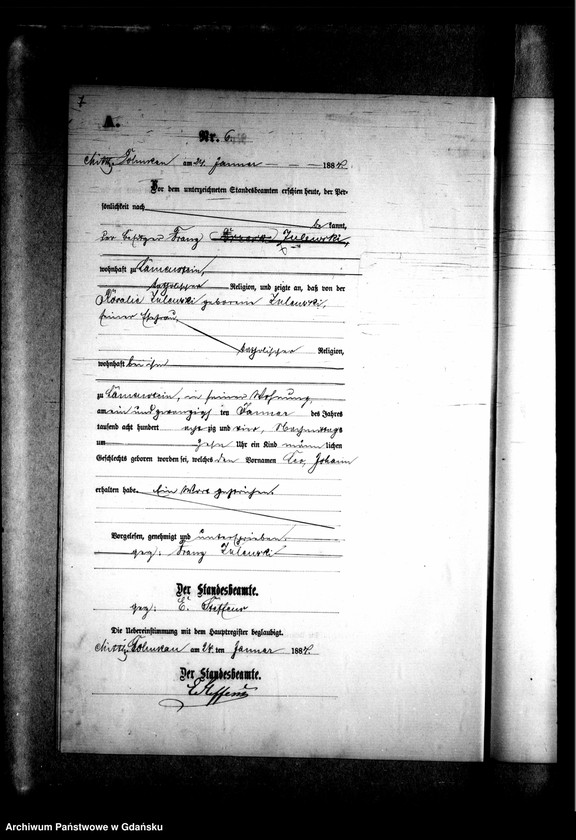 7
A.
Nr. 6.
am 24. Januar 1884.
Vor dem unterzeichneten Standesbeamten erschien heute, der Per-
sönlichkeit nach
be kannt,
der Besitzer Franz Zulewski,
wohnhaft zu
katholischer Religion, und zeigte an, daß von der
Rosalie Zulewski geborene Zulewski,
seiner Ehefrau
katholischer Religion,
wohnhaft bei ihm
zu in seiner Wohnung,
am ein und zwanzigsten Januar des Jahres
tausend acht hundert acht zig und vier, Nachmittags
um zehn Uhr ein Kind männ lichen
Geschlechts geboren worden sei, welches den Vornamen Leo, Johann
erhalten habe. Ein Wort gestrichen.
Vorgelesen, genehmigt und unterschrieben.
gez: Franz Zulewski
Der Standesbeamte.
gez: E. Steffens
Die Uebereinstimmung mit dem Hauptregister beglaubigt.
am 24. ten Januar 1884.
Der Standesbeamte.
E Steffens
Archiwum Państwowe w Gdańsku